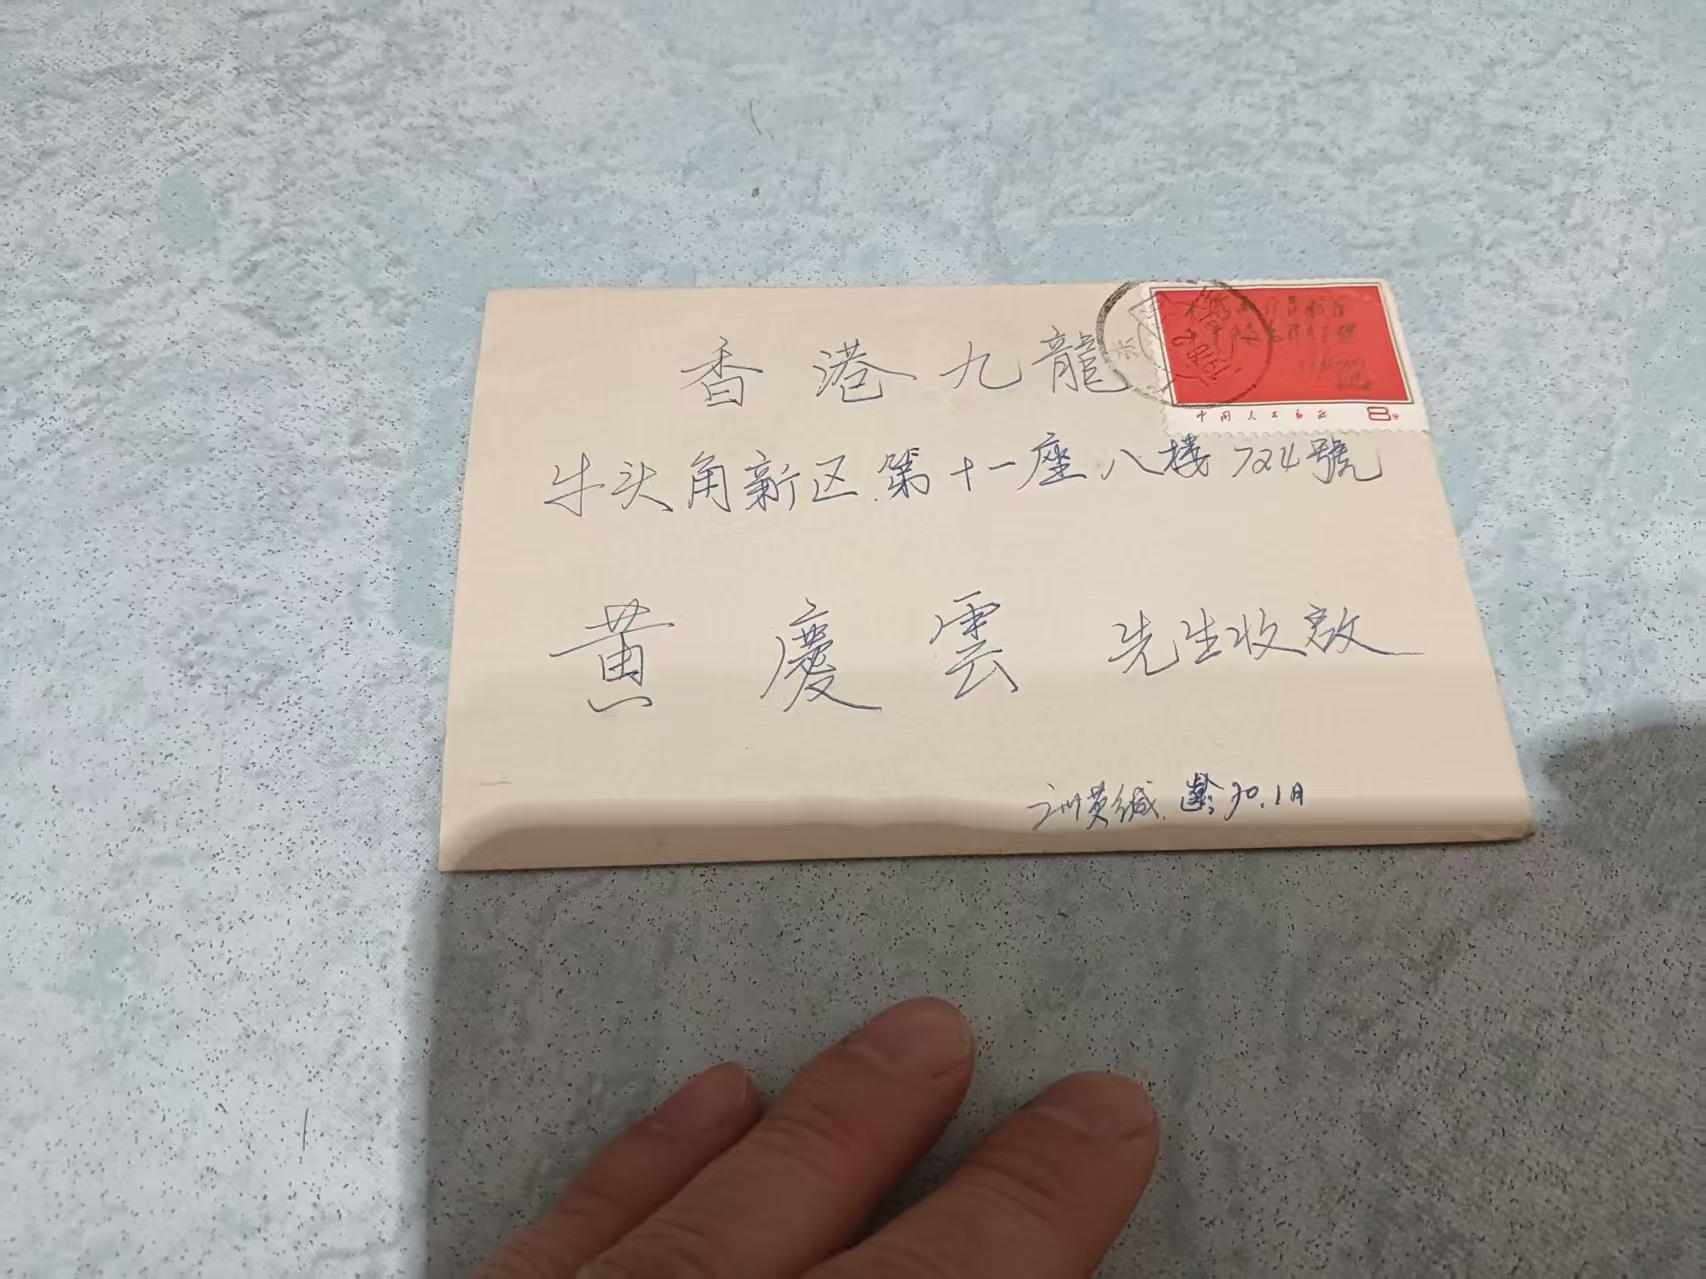 香港九龍
中国人民邮政 8分
牛头角新区第十一座八楼724號
黄慶雲 先生收啟
黄缄 30.1日